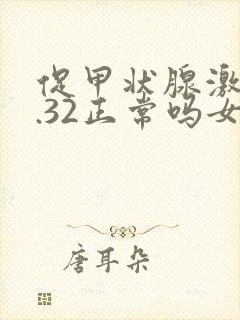 促甲状腺激
.32正常吗女
唐耳朵